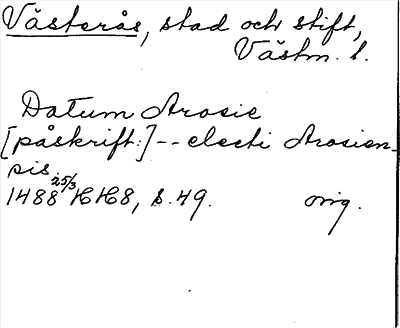 Västerås, stad och stift,
Västm. l.
Datum Arosie
[påskrift:] -- electi Arosien-
sis.
1488 25/3 HH8, s. 49. orig.